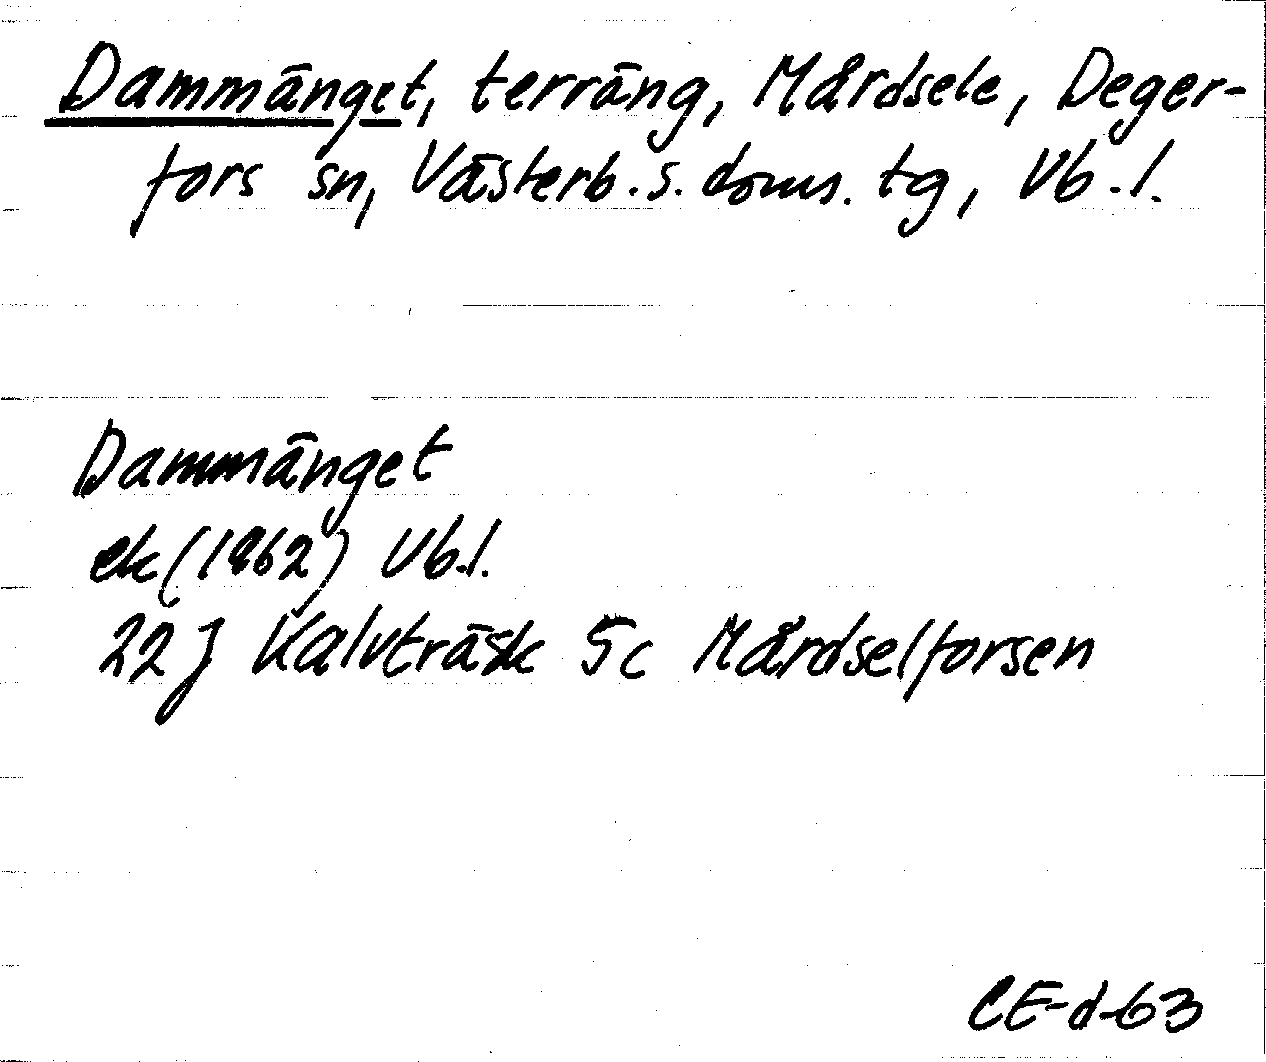 Dammänget, terräng, Mårdsele, Deger-
fors sn, Västerb. s. doms. tg, Vb. l.
Dammänget
ek (1962) Vb.l.
22 J Kalvträsk 5c Mårdselforsen
CE-d-63